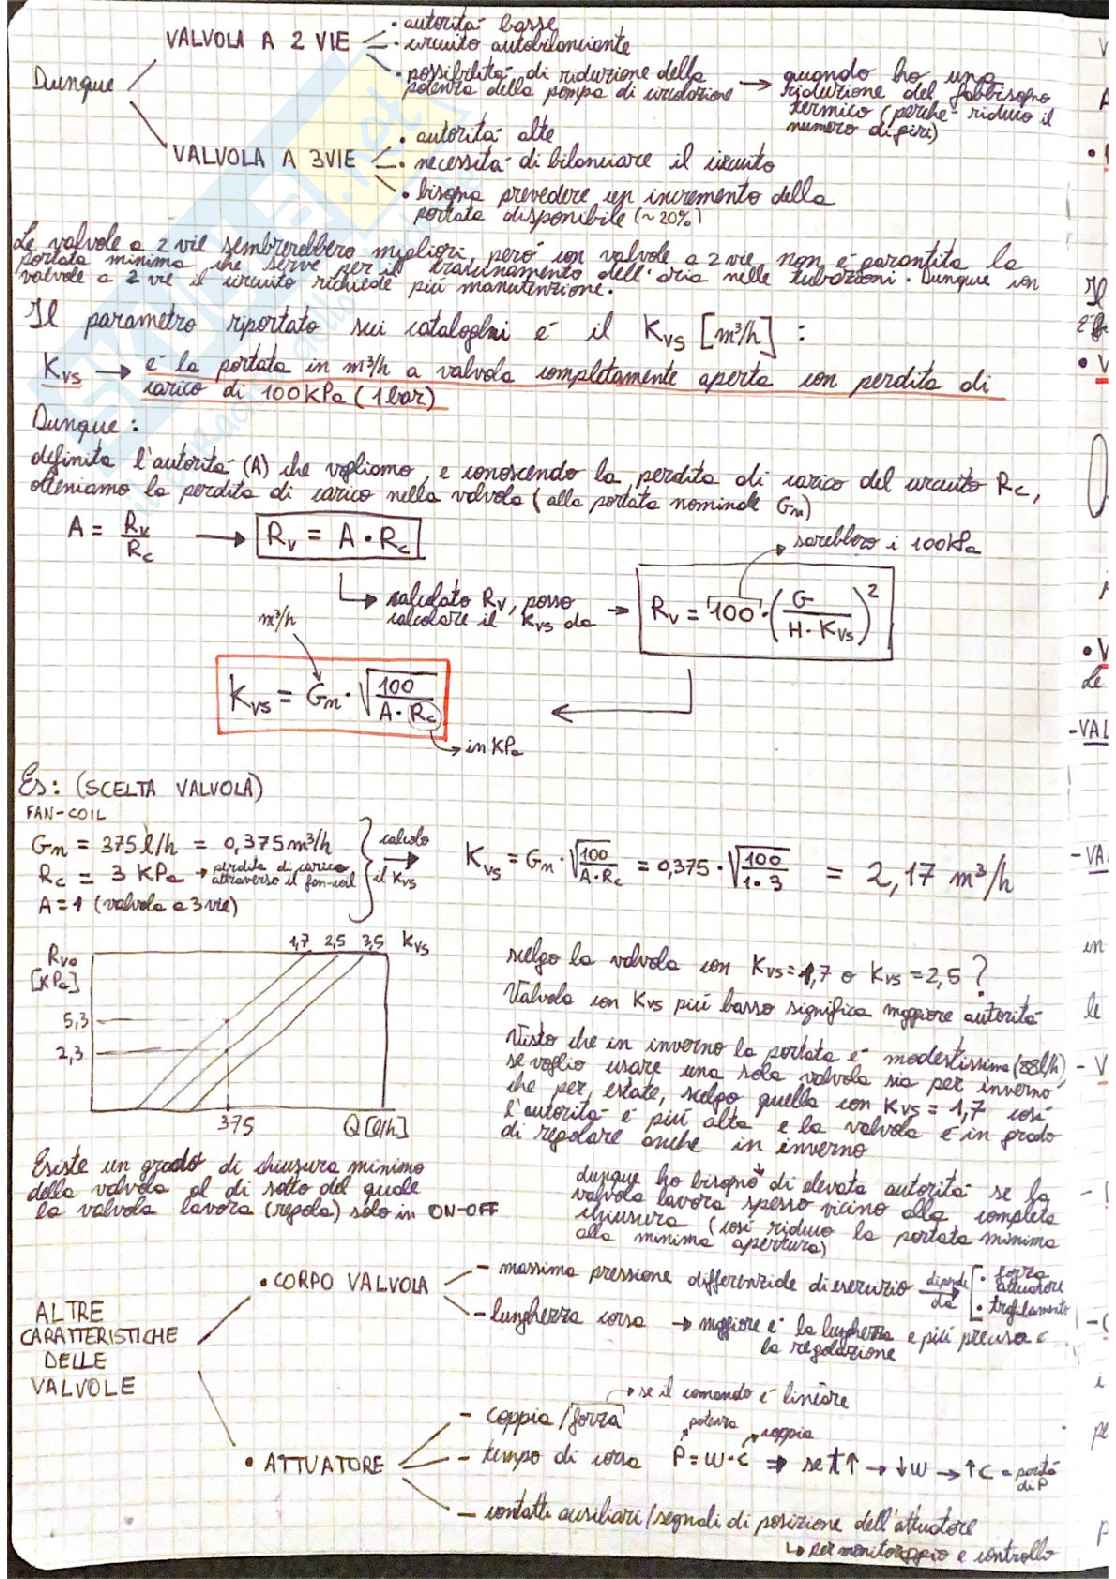 Dunque
VALVOLA A 2 VIE
• autorità basse
• circuito autobilanciante
• possibilità di riduzione della
potenza della pompa di circolazione
→ quando ho una
riduzione del fabbisogno
termico (perché riduco il
numero di giri)
VALVOLA A 3VIE
• autorità alte
• necessità di bilanciare il circuito
• bisogna prevedere un incremento della
portata disponibile (~20%)
Le valvole a 2 vie sembrerebbero migliori, però con valvole a 2 vie non è garantita la
portata minima che serve per il trascinamento dell'aria nelle tubazioni. Dunque con
valvole a 2 vie il circuito richiede più manutenzione.
Il parametro riportato sui cataloghi è il Kvs [m³/h] :
Kvs → è la portata in m³/h a valvola completamente aperta con perdita di
carico di 100KPa (1bar)
Dunque :
definita l'autorità (A) che vogliamo, e conoscendo la perdita di carico del circuito Rc,
otteniamo la perdita di carico nella valvola (alla portata nominale Gn)
A = Rv/Rc → Rv = A • Rc
sarebbero i 100kPa
calcolato Rv, posso
calcolare il Kvs da → Rv = 100 • (G / H • Kvs)²
m³/h
Kvs = Gn • √(100 / A • Rc)
→ in KPa
Es: (SCELTA VALVOLA)
FAN-COIL
Gn = 375 l/h = 0,375 m³/h
Rc = 3 KPa → perdita di carico
attraverso il fan-coil
A = 1 (valvola a 3 vie)
calcolo
il Kvs
Kvs = Gn • √(100 / A • Rc) = 0,375 • √(100 / 1 • 3) = 2,17 m³/h
1,7 2,5 3,5 Kvs
Rva
[KPa]
5,3
2,3
375 Q [l/h]
scelgo la valvola con Kvs = 1,7 o Kvs = 2,5 ?
Valvola con Kvs più basso significa maggiore autorità
Visto che in inverno la portata è modestissima (88l/h)
se voglio usare una sola valvola sia per inverno
che per estate, scelgo quella con Kvs = 1,7 così
l'autorità è più alta e la valvola è in grado
di regolare anche in inverno
Esiste un grado di chiusura minimo
della valvola al di sotto del quale
la valvola lavora (regola) solo in ON-OFF
dunque ho bisogno di elevata autorità se la
valvola lavora spesso vicino alla completa
chiusura (così riduco la portata minima
alla minima apertura)
ALTRE
CARATTERISTICHE
DELLE
VALVOLE
• CORPO VALVOLA
- massima pressione differenziale di esercizio dipende
da
• forza
attuatore
• trafilamento
- lunghezza corsa → maggiore è la lunghezza e più precisa è
la regolazione
• ATTUATORE
→ se il comando è lineare
- coppia / forza
potenza coppia
- tempo di corsa P = W • C ⇒ se t↑ → ↓W → ↑C a parità
di P
- contatti ausiliari / segnali di posizione dell'attuatore
↳ per monitoraggio e controllo